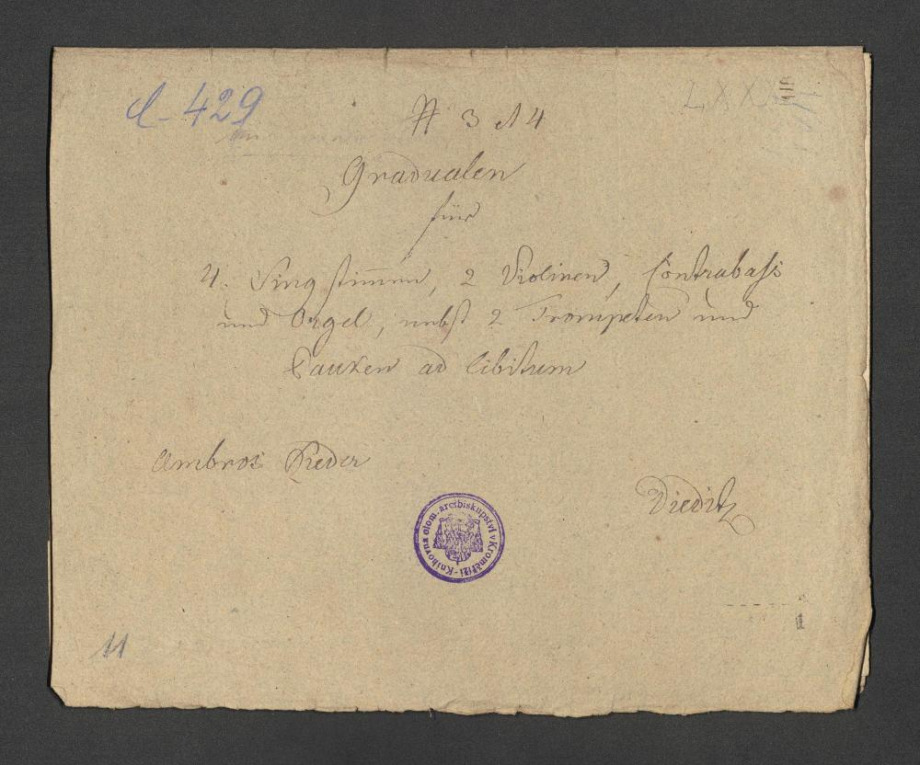 C-429
LXX
№ 3 et 4
Gradualen
für
4. Singstimmen, 2 Violinen, Contrabass
und Orgel, nebst 2 Trompeten und
Pauken ad libitum
Ambros Rieder
Dieditz
Knihovna olom. arcibiskupství v Kroměříži
11